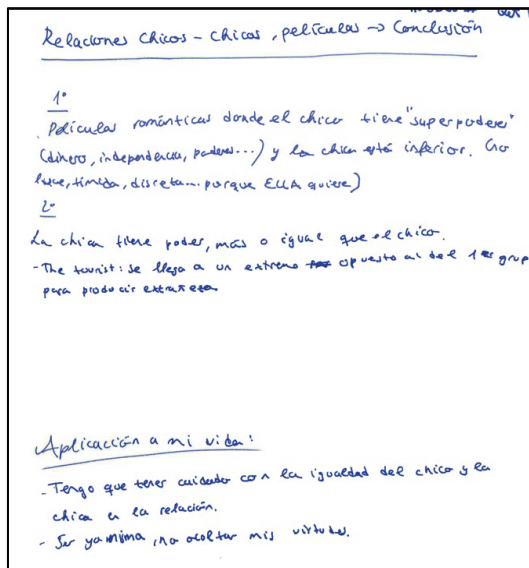 Relaciones chicos - chicas, películas → Conclusión
1º
. Películas románticas donde el chico tiene "superpoderes"
(dinero, independencia, poderes...) y la chica está inferior. (no
luce, tímida, discreta... porque ELLA quiere)
2º
La chica tiene poder, más o igual que el chico.
- The tourist: se llega a un extremo opuesto al del 1er grupo
para producir extrañeza
Aplicación a mi vida:
- Tengo que tener cuidado con la igualdad del chico y la
chica en la relación.
- Ser yo misma, no ocultar mis virtudes.